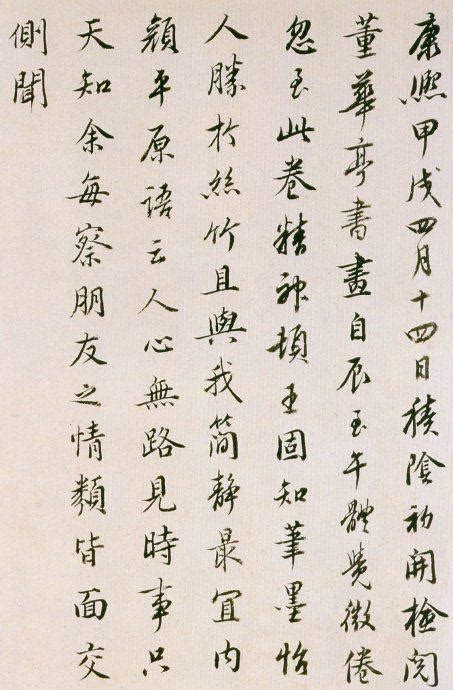 康熙甲戌四月十四日積陰初開檢閱
董華亭書畫自辰至午體覺微倦
忽至此卷精神頓王固知筆墨怡
人勝於絲竹且與我簡静最宜内
顔平原語云人心無路見時事只
天知余每察朋友之情類皆面交
側聞